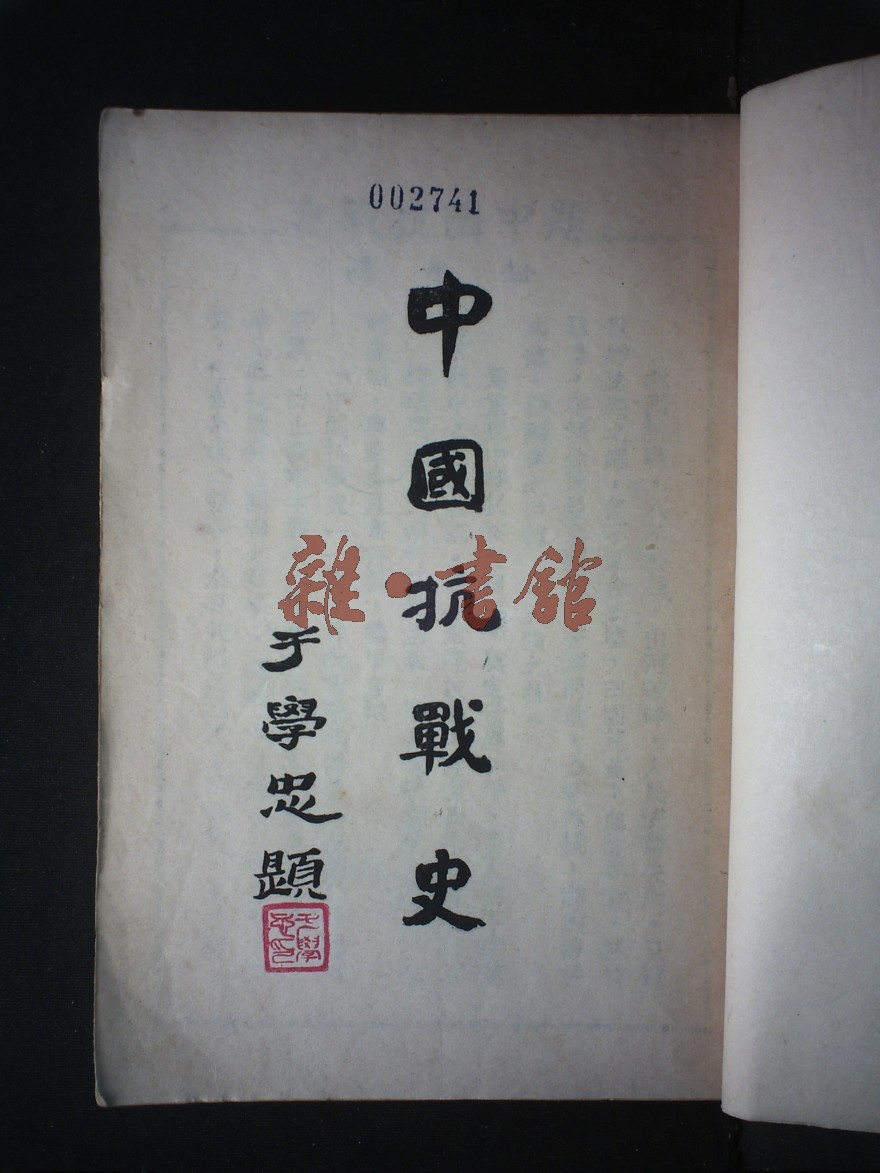 002741
中國抗戰史
于學忠題
于學忠印
雜·書館